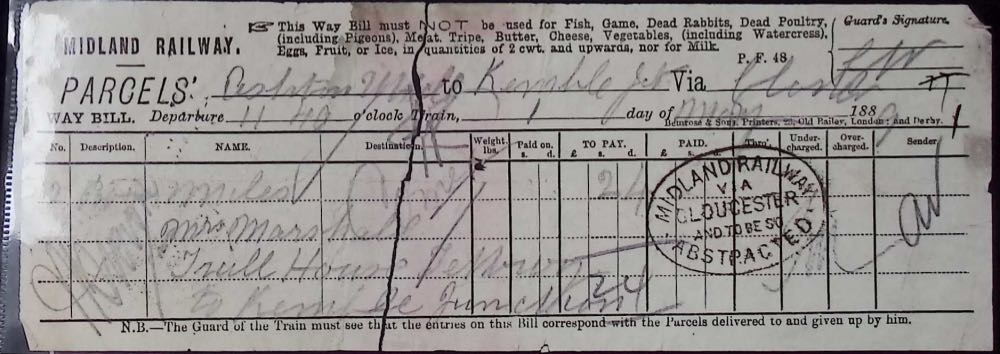 ☞ This Way Bill must NOT be used for Fish, Game, Dead Rabbits, Dead Poultry,
(including Pigeons), Meat, Tripe, Butter, Cheese, Vegetables, (including Watercress).
Eggs, Fruit, or Ice, in quantities of 2 cwt. and upwards, nor for Milk.
Guard's Signature.
MIDLAND RAILWAY.
P. F. 48
PARCELS' Ashton to Kemble Jct Via Gloster
WAY BILL. Departure 11 40 o'clock Train, 1 day of May 188
Bemrose & Sons, Printers, 23, Old Bailey, London; and Derby.
No. Description. NAME. Destination. Weight. lbs. Paid on. s. d. TO PAY. £ s. d. PAID. £ s. d. Thro'. Under-charged. Over-charged. Sender
Miles 2 4
Mrs Marshall
Trull House
to Kemble Junction 2 4
MIDLAND RAILWAY
VIA
GLOUCESTER
AND TO BE SO
ABSTRACTED
N.B.—The Guard of the Train must see that the entries on this Bill correspond with the Parcels delivered to and given up by him.